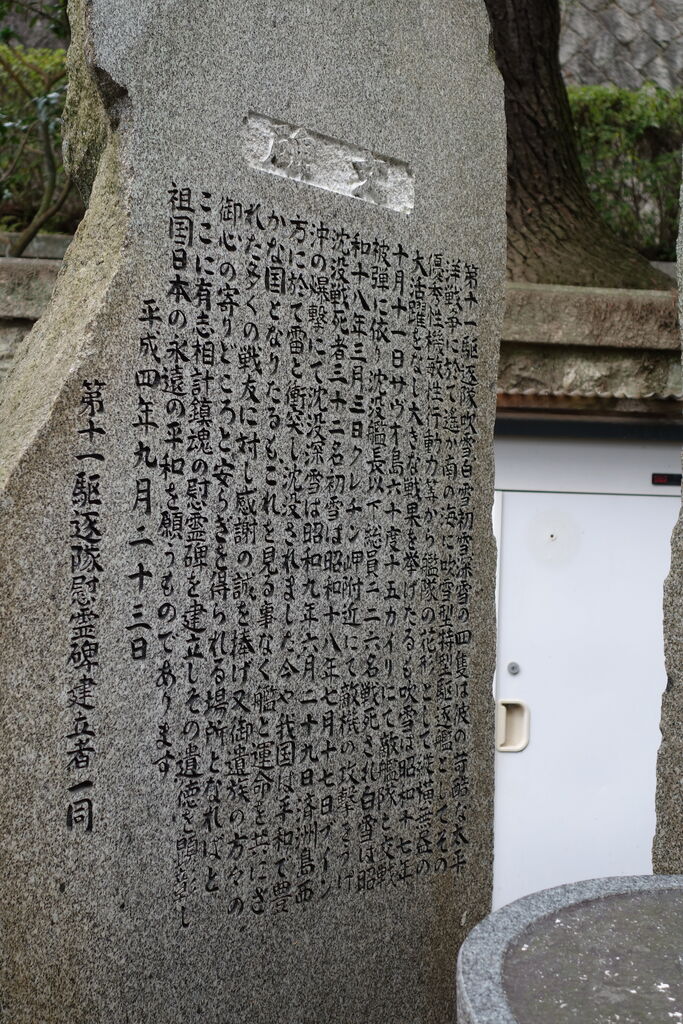 碑文
第十一駆逐隊吹雪白雪初雪深雪の四隻は彼の苛酷な太平
洋戦争に於て遙か南の海に吹雪型特型駆逐艦としてその
優秀性機敏性行動力等から艦隊の花形として
大活躍をなし大きな戦果を挙げたるも吹雪は昭和十七年
十月十一日サウオ島六十度十五カイリにて敵艦隊と交戦
被弾に依り沈没艦長以下総員二二六名戦死され白雪は昭
和十八年三月三日クレチン岬附近にて敵機の攻撃をうけ
沈没戦死者三十二名初雪は昭和十八年七月十七日ブイン
沖の爆撃にて沈没深雪は昭和九年六月二十九日済洲島西
方に於て雷と衝突し沈没されました今や我国は平和で豊
かな国となりたるもこれを見る事なく艦と運命を共にさ
れた多くの戦友に対し感謝の誠を捧げ又御遺族の方々の
御心の寄りどころと安らぎを得られる場所となればと
ここに有志相計鎮魂の慰霊碑を建立しその遺徳を顕彰し
祖国日本の永遠の平和を願うものであります
平成四年九月二十三日
第十一駆逐隊慰霊碑建立者一同